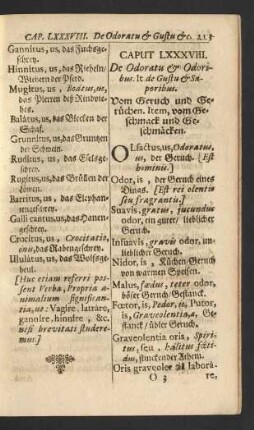 CAP. LXXXVIII. De Odoratu & Gustu &c. 213
Gannitus, us, das Fuchsge-
schrey.
Hinnitus, us, das Rieheln/
Wiehern der Pferd.
Mugitus, us, boatus, us,
das Plerren deß Rindvie-
hes.
Balātus, us, das Blecken der
Schaf.
Grunnitus, us, das Gruntzen
der Schwein.
Ruditus, us, das Eselge-
schrey.
Rugitus, us, das Brüllen der
Löwen.
Barritus, us, das Elephan-
tengeschrey.
Galli cantus, us, das Hanen-
geschrey.
Crocitus, us, Crocitatio,
onis, das Rabengeschrey.
Ululātus, us, das Wolfsge-
heul.
[Huc etiam referri pos-
sent Verba, Propria a-
nimalium significan-
tia, ut: Vagire, latrare,
gannire, hinnire, &c.
nisi brevitati studere-
mus.]
CAPUT LXXXVIII.
De Odoratu & Odori-
bus. It. de Gustu & Sa-
poribus.
Vom Geruch und Ge-
rüchen. Item, vom Ge-
schmack und Ge-
schmäcken.
OLfactus, us, Odoratus,
us, der Geruch. [Est
hominis.]
Odor, is, der Geruch eines
Dings. [Est rei olentis
seu fragrantis.]
Suavis, gratus, jucundus
odor, ein guter/ lieblicher
Geruch.
Insuavis, gravis odor, un-
lieblicher Geruch.
Nidor, is, Küchen Geruch
von warmen Speisen.
Malus, fœdus, teter odor,
böser Geruch, Gestanck.
Fœtor, is, Pedor, is, Putor,
is, Graveolentia, æ, Ge-
stanck/ übler Geruch.
Graveolentia oris, Spiri-
tus, seu, halitus fœti-
dus, stinckender Athem.
Oris graveolentiâ laborā-
O 3 re,